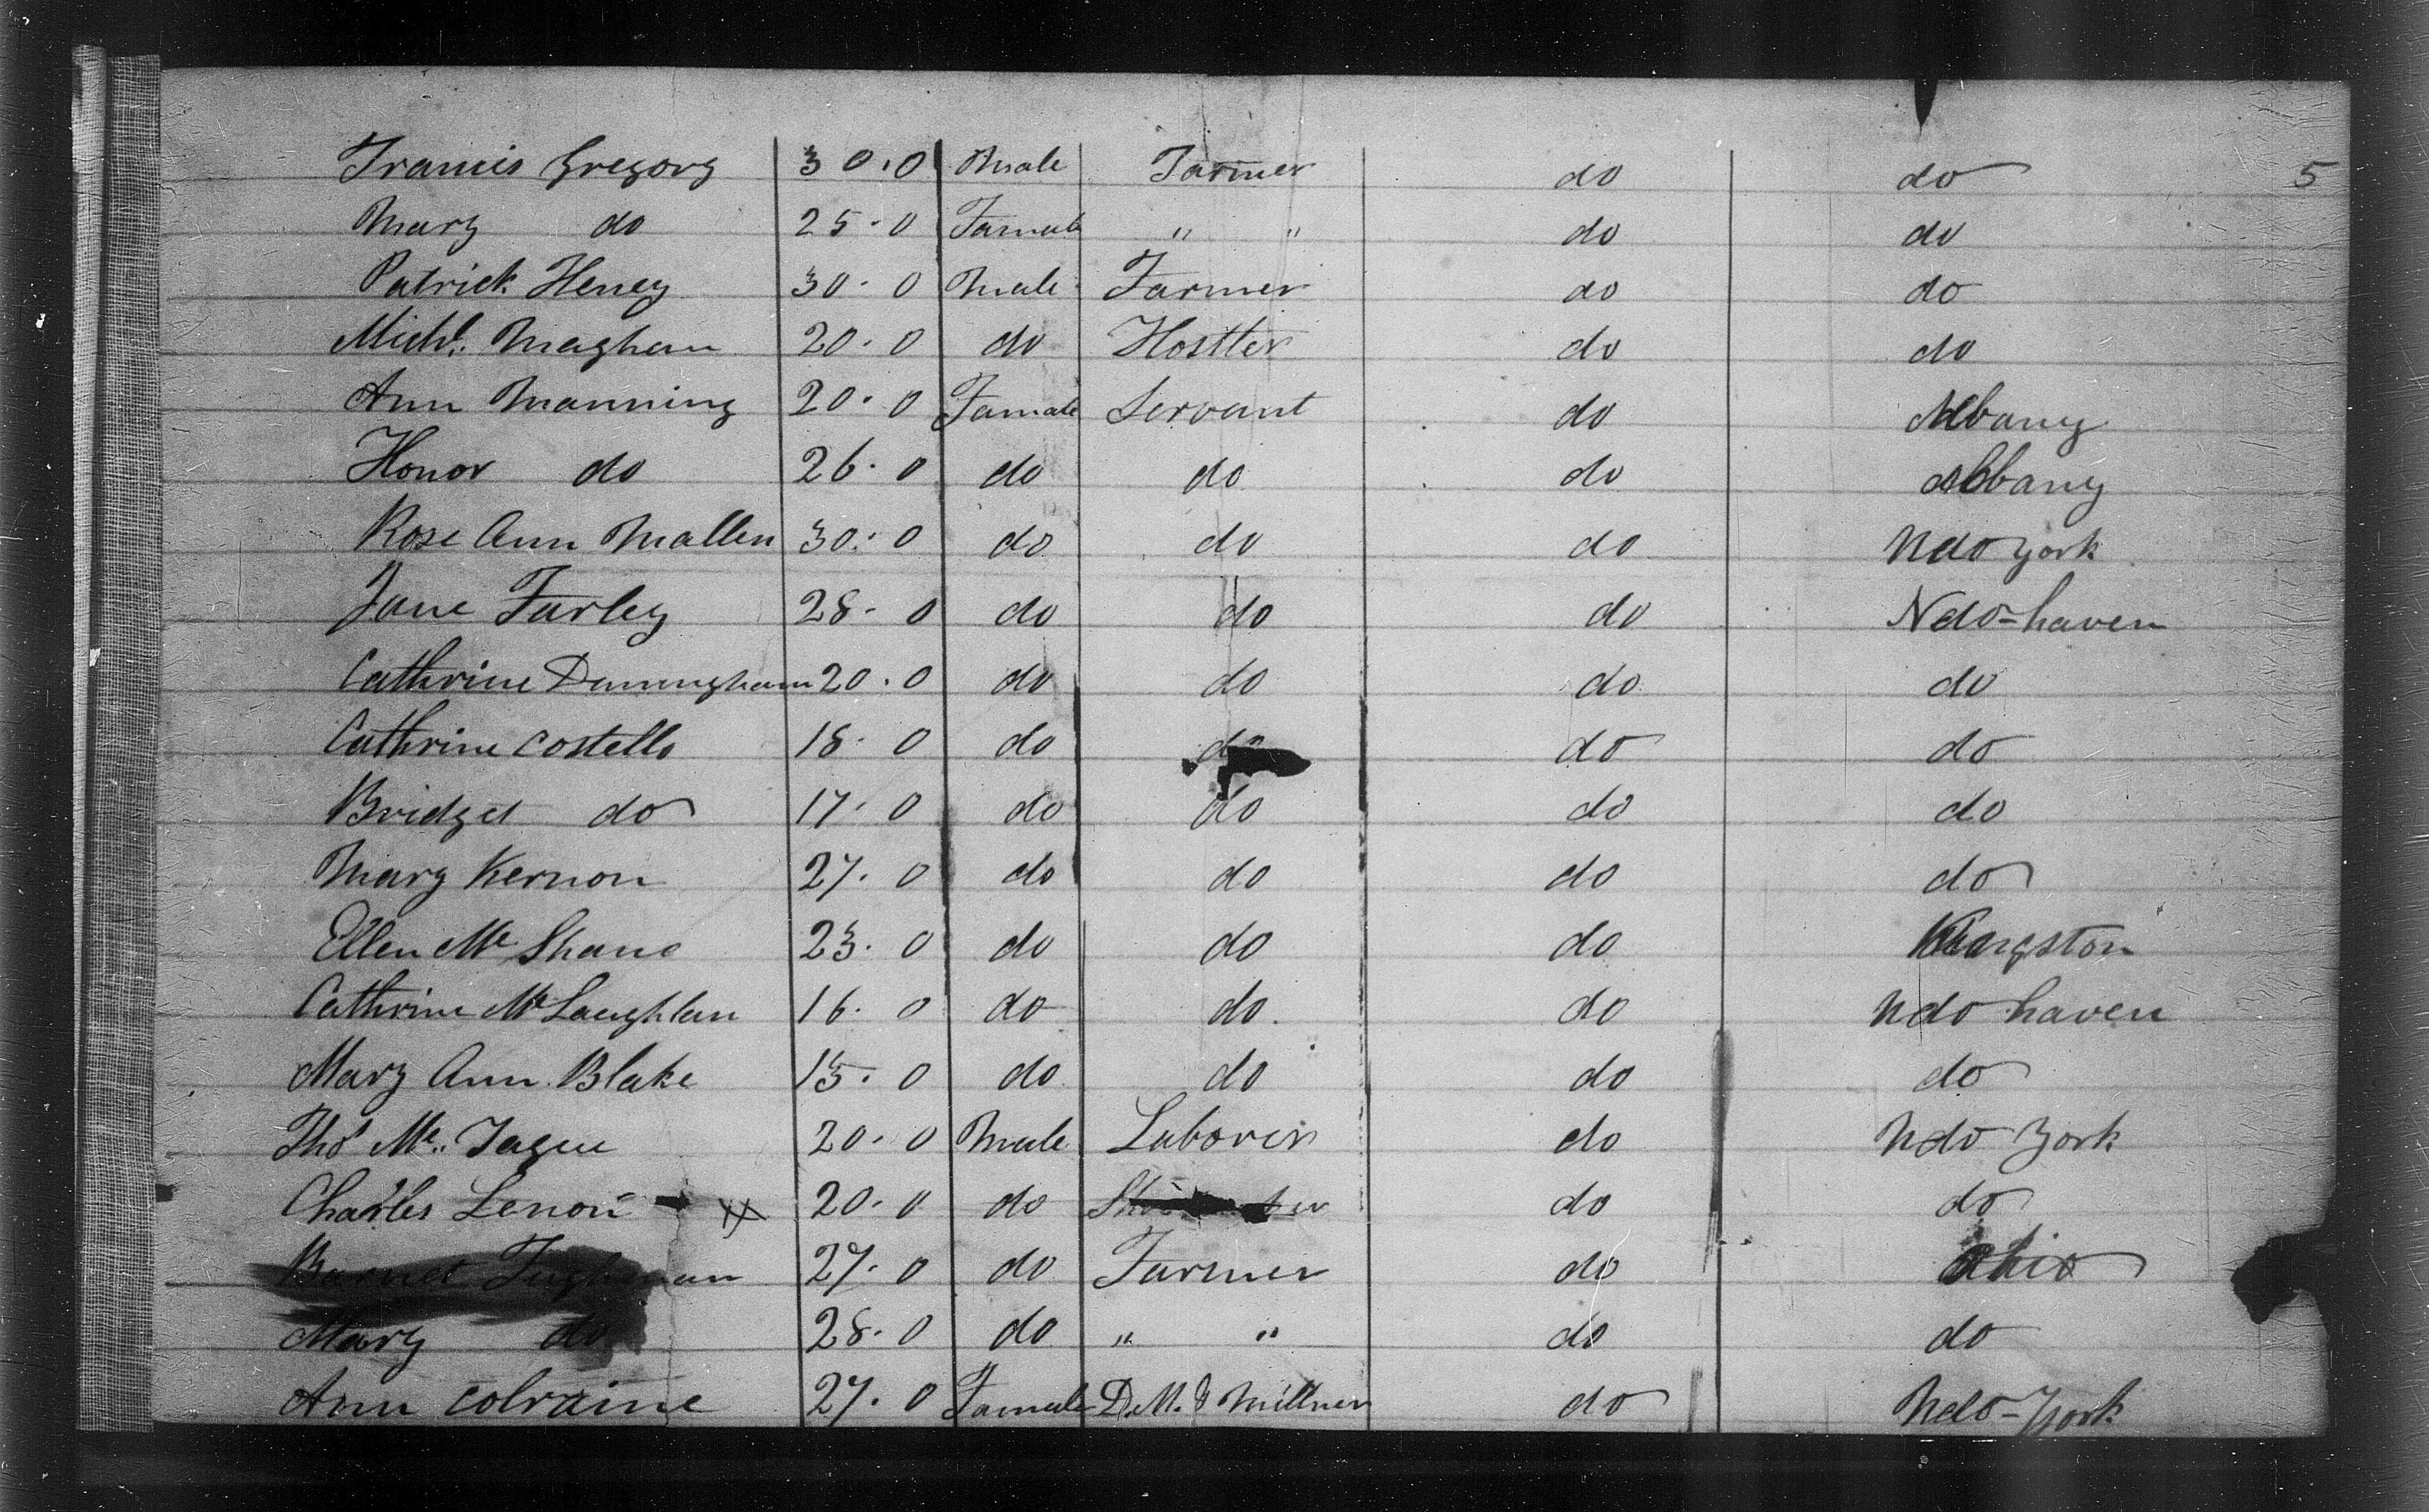 Francis Gregory 30.0 Male Farmer do do 5
Mary do 25.0 Famale " " do do
Patrick Heney 30.0 Male Farmer do do
Michl. Maghan 20.0 do Hostler do do
Ann Manning 20.0 Famale Servant do Albany
Honor do 26.0 do do do Albany
Rose Ann Mallen 30.0 do do do Ndo york
Jane Farley 28.0 do do do Ndo-haven
Cathrine Dunningham 20.0 do do do do
Cathrine Costello 18.0 do do do do
Bridget do 17.0 do do do do
Mary Kernon 27.0 do do do do
Ellen Mc Shane 23.0 do do do Kingston
Cathrine Mc Laughlan 16.0 do do do Ndo haven
Mary Ann Blake 15.0 do do do do
Thos Mc. Tague 20.0 Male Laborer do Ndo York
Charles Lenon 20.0 do do do
Barnet 27.0 do Farmer do Ohio
Mary do 28.0 do " " do do
Ann Colraine 27.0 Famale D.M. & Millner do Ndo-York